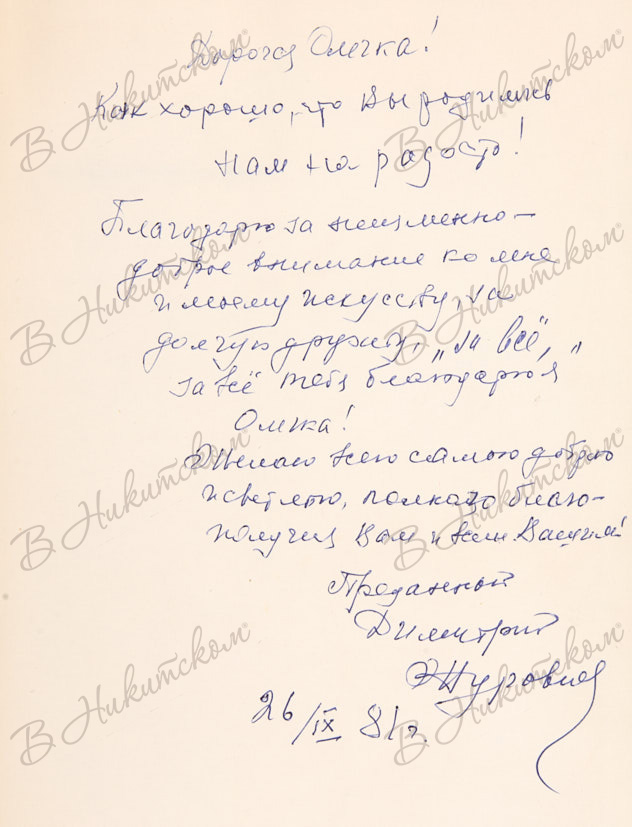 Дорогая Олечка!
Как хорошо, что Вы родились
нам на радость!
Благодарю за неизменно-
доброе внимание ко мне
и моему искусству, за
долгую дружбу, „за всё,
за всё тебя благодарю я"
Олечка!
Желаю всего самого доброго
и светлого, полного благо-
получия Вам и всем Вашим!
Преданный
Димитрий
Журавлев
26/IX 81 г.
В Никитском